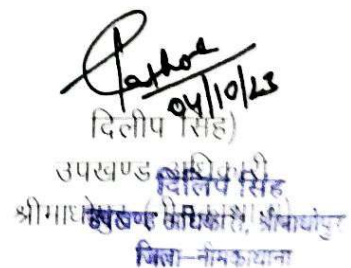 04/10/23
दिलीप सिंह)
उपखण्ड अधिकारी
दिलिप सिंह
श्रीमाधोपुर
उपखण्ड अधिकारी, श्रीमाधोपुर
जिला-नीमकाथाना